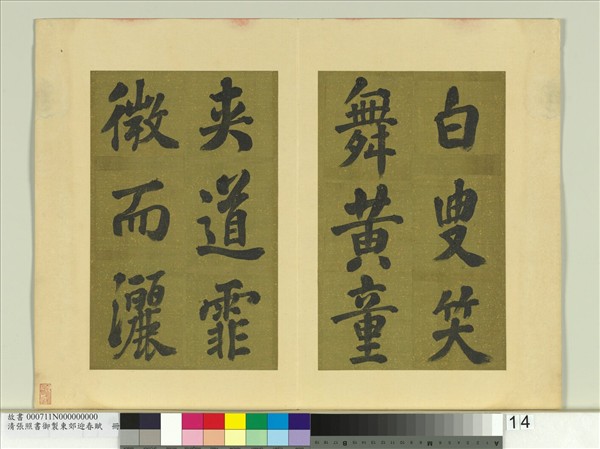 白叟笑
舞黃童
夾道霏
微而灑
故書 000711N000000000
清張照書御製東郊迎春賦 冊
14